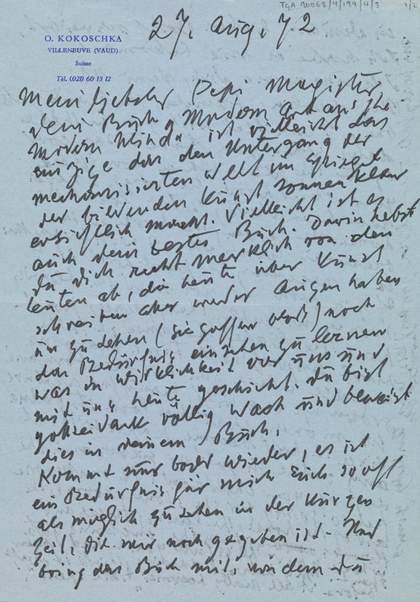 TGA 20052/4/199/4/3 1/2
27. Aug. 72
O. KOKOSCHKA
VILLENEUVE (VAUD)
Suisse
Tél. (021) 60 13 12
Mein liebster Pepi Magister
dein Buch „Modern Art and the
Modern Mind“ ist vielleicht das
einzige das den Untergang der
mechanisierten Welt im Spiegel
der bildenden Kunst sonnenklar
ersichtlich macht. Vielleicht ist es
auch dein bestes Buch. Darin hebst
du dich recht merklich von den
Leuten ab, die heute über Kunst
schreiben aber weder Augen haben
zu sehen (sie gaffen bloß) noch
das Bedürfnis einsehen zu lernen
was in Wirklichkeit vor uns und
mit uns heute geschieht. Du bist
gottseidank völlig wach und beweist
dies in deinem Buch.
Kommt nur bald wieder, es ist
ein Bedürfnis für mich Euch so oft
als möglich zu sehen in der kurzen
Zeit, die mir noch gegeben ist. Und
bring das Buch mit, von dem du